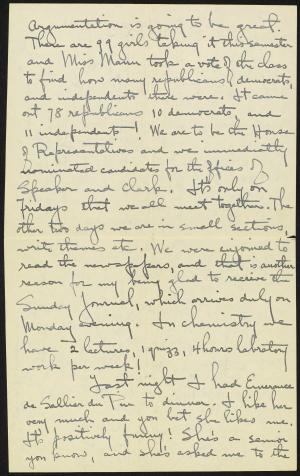 Argumentation is going to be great.
There are 99 girls taking it this semester
and Miss Mann took a vote of the class
to find how many republicans, democrats,
and independents there were. It came
out 78 republicans 10 democrats, and
11 independents! We are to be the House
of Representatives and we immediately
nominated candidates for the offices of
Speaker and Clerk. It's only on
Fridays that we all meet together. The
other two days we are in small sections,
write themes etc. We were enjoined to
read the newspapers, and that is another
reason for my being glad to receive the
Sunday Journal, which arrives duly on
Monday evening. In chemistry we
have 2 lectures, 1 quizz, 4 hours labratory
work per week!
Last night I had Emerance
de Sallier du Pin to dinner. I like her
very much and you bet she likes me.
It's positively funny! She's a senior
you know, and she's asked me to the